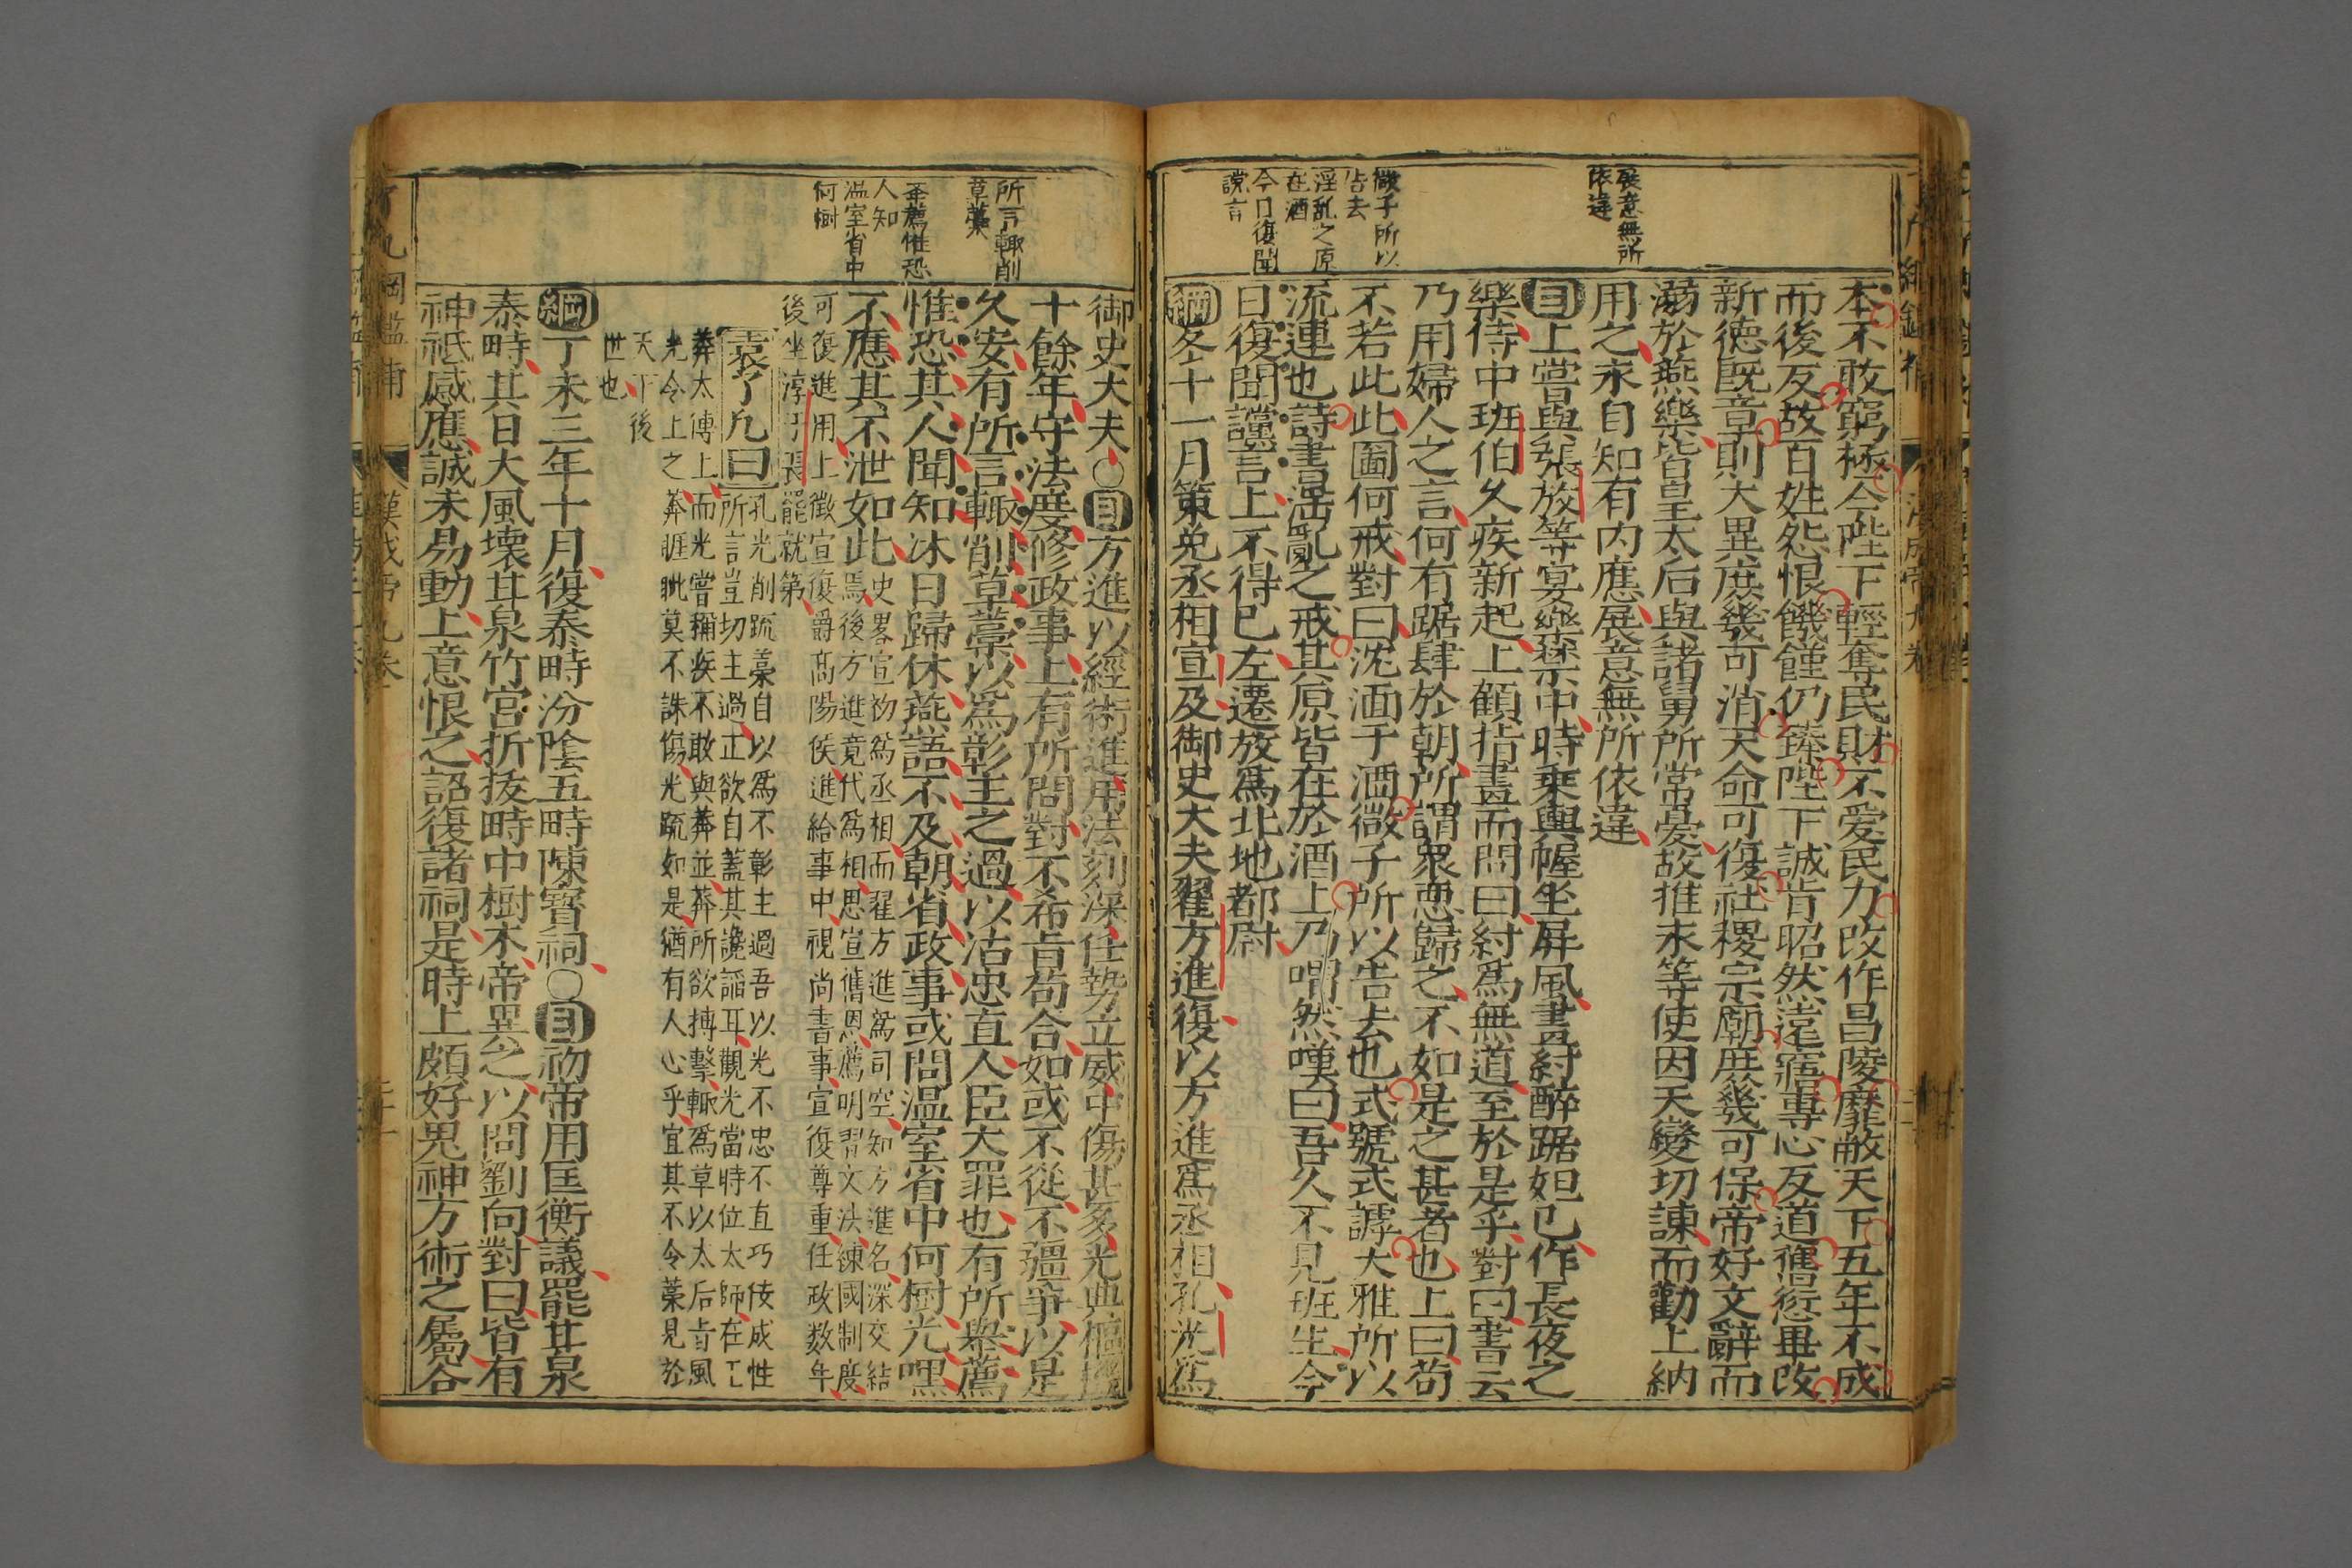 展意無所
依違
微子所以
告去
淫亂之原
在酒
今日復聞
讜言
本不敢窮極今陛下輕奪民財不愛民力改作昌陵靡敝天下五年不成
而後反故百姓怨恨饑饉仍臻陛下誠肯昭然遠寤專心反道舊愆畢改
新德既章則大異庶幾可消天命可復社稷宗廟庶幾可保帝好文辭而
溺於燕樂皆皇太后與諸舅所常憂故推末等使因天變切諫而勸上納
用之永自知有内應展意無所依違
目上嘗與張放等宴樂禁中時乘輿幄坐屏風畫紂醉踞妲己作長夜之
樂侍中班伯久疾新起上顧指畫而問曰紂爲無道至於是乎對曰書云
乃用婦人之言何有踞肆於朝所謂衆惡歸之不如是之甚者也上曰苟
不若此此圖何戒對曰沈湎于酒微子所以告去也式號式謼大雅所以
流連也詩書淫亂之戒其原皆在於酒上乃喟然嘆曰吾久不見班生今
日復聞讜言上不得已左遷放爲北地都尉
綱冬十一月策免丞相宣及御史大夫翟方進復以方進爲丞相孔光爲
所言輙削
草藁
舉薦惟恐
人知
温室省中
何樹
御史大夫○目方進以經術進用法刻深任勢立威中傷甚多光典樞機
十餘年守法度修政事上有所問對不希旨苟合如或不從不疆爭以是
久安有所言輙削草藁以爲彰主之過以沽忠直人臣大罪也有所舉薦
惟恐其人聞知沐日歸休燕語不及朝省政事或問温室省中何樹光嘿
不應其不泄如此史畧宣初爲丞相而翟方進爲司空知方進名深交結
焉後方進竟代爲相思宣舊恩薦明習文法練國制度
可復進用上徵宣復爵高陽侯進給事中視尚書事宣復尊重任政数年
後坐淳于張罷就第
袁了凡曰孔光削疏藁自以爲不彰主過吾以光不忠不直巧佞成性
所言豈切主過正欲自蓋其讒謟耳觀光當時位太師在王
莽太傅上而光嘗稱疾不敢與莽並莽所欲搏擊輙爲草以太后旨風
光令上之莽睚眦莫不誅傷光疏如是猶有人心乎宜其不令藁見於
天下後
世也
綱丁未三年十月復泰畤汾陰五畤陳寶祠○目初帝用匡衡議罷甘泉
泰畤其日大風壞甘泉竹宮折拔畤中樹木帝異之以問劉向對曰皆有
神祗感應誠未易動上意恨之詔復諸祠是時上頗好鬼神方術之屬谷